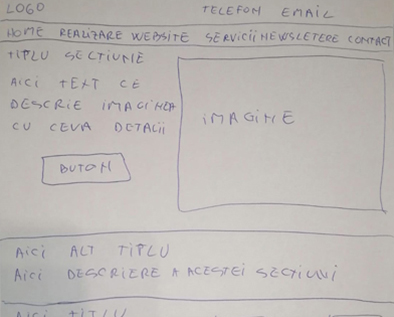 LOGO TELEFON EMAIL
HOME REALIZARE WEBSITE SERVICII NEWSLETERE CONTACT
TIPLU SECTIUNE
AICI TEXT CE
DESCRIE IMAGINEA
CU CEVA DETALII
IMAGINE
BUTON
AICI ALT TIPLU
AICI DESCRIERE A ACESTEI SECTIUNI
AICI TITLU